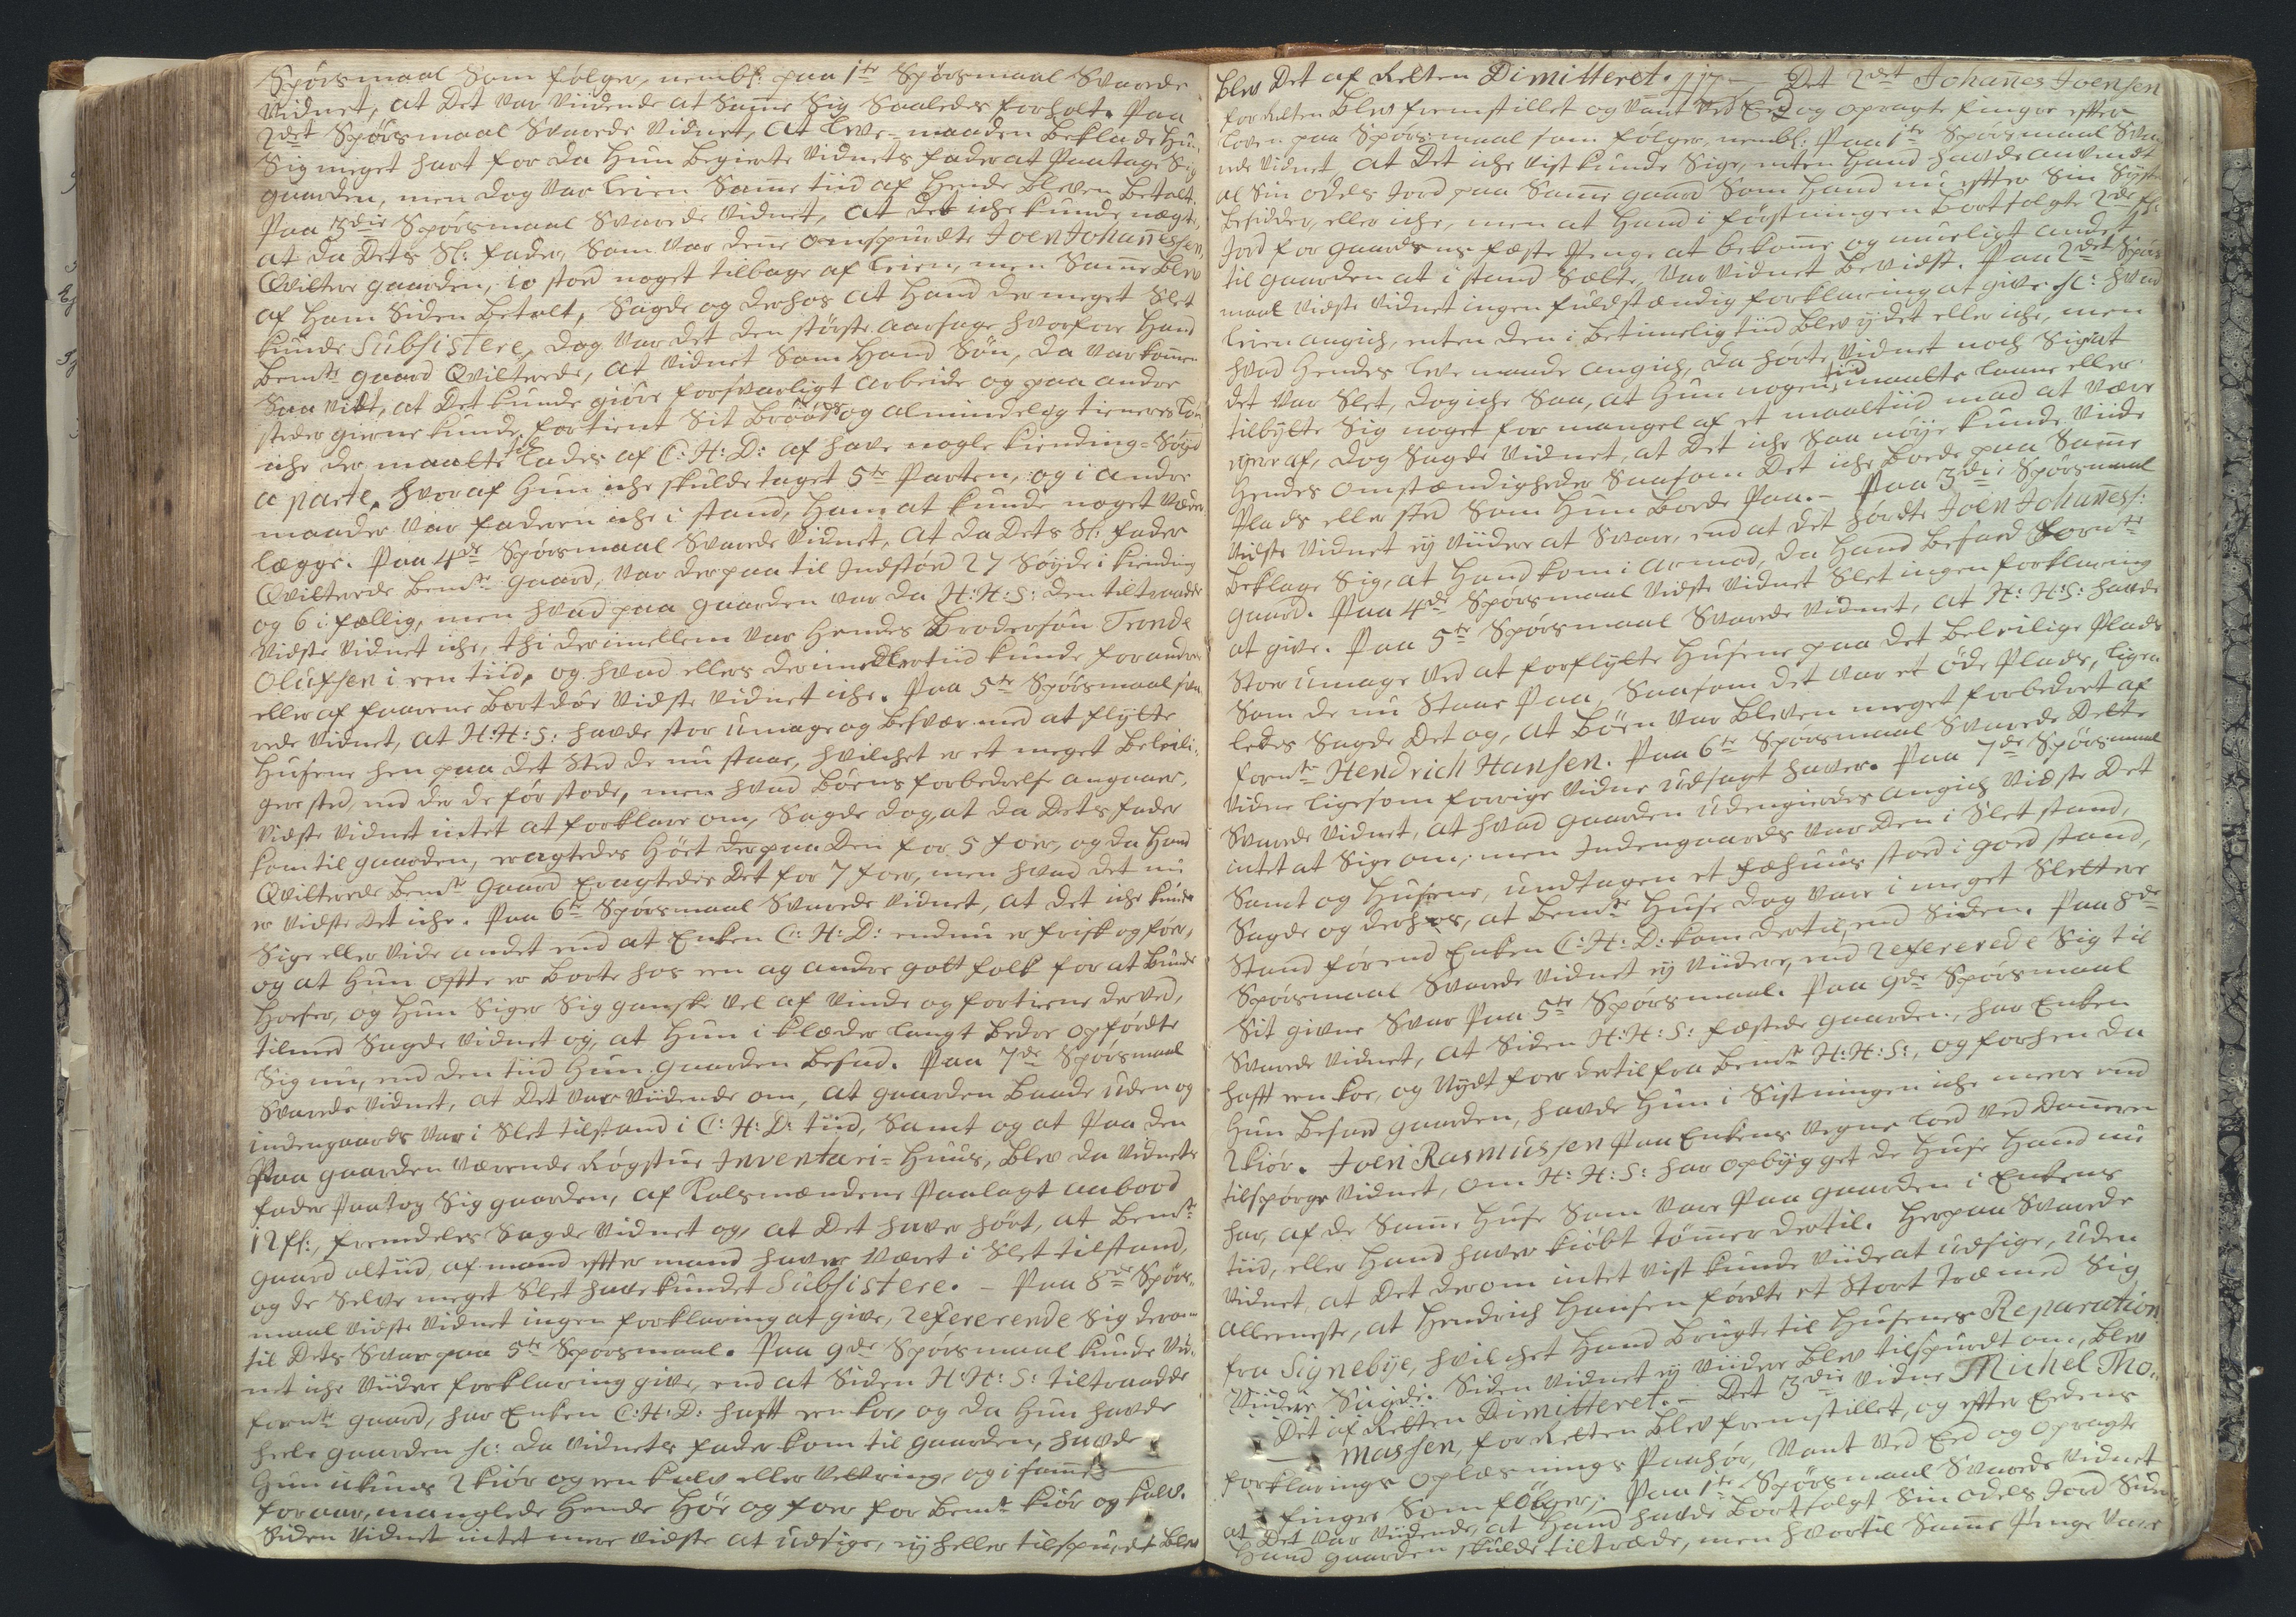 Spörsmaal Som følger, nembl: paa 1te Spörsmaal Svarede
Vidnet, at Det var viidende at Samme Sig Saaledes forholt. Paa
2det Spörsmaal Svarede Vidnet, at leve-maaden beklade Hun
Sig meget hart for da Hun begierte Vidnets fader at Paatage Sig
gaarden, men dog var leien Samme tiid af Hende bleven betalt.
Paa 3die Spörsmaal Svarede Vidnet, at det iche kunde nægte,
at da Dets Sl: fader, Som var denne omspurdte Joen Johannessen,
Qvitterede gaarden, io stod noget tilbage af leien, men Samme blev
af Ham Siden betalt, Sagde og derhos at Hand der meget Slet
kunde Subsistere, dog var det den störste aarsage hvorfore Hand
bemte gaard Qvitterede, at Vidnet Som Hand Sön, da var kommen
Saa vit, at Det kunde giöre forsvarligt arbeide og paa andre
steder gierne kunde fortient Sit Bröd og almindelig tieneres Lön
iche der maatte lades af C: H: D: af have nogle kiending-Söyd
a parte, hvoraf Hun iche skulde taget 5te Parten, og i andre
maader var faderen iche i stand, Ham at kunde noget
lægge. Paa 4de Spörsmaal Svarede Vidnet, at da Dets Sl: fader
Qvitterede bemte gaard, var der paa til Indstöd 27 Söyde i kiending
og 6 i fællig, men hvad paa gaarden var da H: H: S: den tiltraadde
vidste Vidnet iche, thi derimellem var Hendes Brodersön Tronde
Olufsen i een tiid, og hvad ellers derimedlertiid kunde forandres
eller af faarene bortdöe vidste Vidnet iche. Paa 5te Spörsmaal sva-
rede Vidnet, at H: H: S: havde stor umage og besvær med at flytte
Husene hen paa det Sted de nu staar, hvilchet er et meget beleili-
gere sted, end der de för stode, men hvad Böens forbedrelse angaaer,
vidste Vidnet intet at forklare om, Sagde dog, at da Dets fader
kom til gaarden, eragtedes Höet der paa Den for 5 foer, og da Hand
Qvitterede bemte gaard eragtedes Det for 7 foer, men hvad det nu
er vidste Det iche. Paa 6te Spörsmaal Svarede Vidnet, at det iche kunde
Sige eller vide andet end at Enken C: H: D: endnu er frisk og för,
og at Hun ofte er borte hos een og andre got folk for at binde
Hoeser, og Hun Siger Sig ganske vel af vinde og fortiene derved,
tilmed Sagde Vidnet og, at Hun i klæder langt bedre opfördte
Sig nu, end den tiid Hun gaarden besad. Paa 7de Spörsmaal
Svarede Vidnet, at Det var viidende om, at gaarden baade uden og
indengaards var i Slet tilstand i C: H: D: tiid, Samt og at Paa den
Paa gaarden værende Rögstue Inventari-Huus, blev da Vidnets
fader Paatog Sig gaarden, af Kalsmændene Paalagt aabood
12 fl:, fremdeles Sagde Vidnet og, at Det haver hört, at bemte
gaard altiid, af mand efter mand haver været i Slet tilstand,
og de Selve meget Slet have kundet Subsistere. - Paa 8de Spörs-
maal vidste Vidnet ingen forklaring at give, refererende Sig derom
til Dets Svar paa 5te Spörsmaal. Paa 9de Spörsmaal kunde Vid-
net iche viidere forklaring give, end at Siden H: H: S: tiltraadde
formte gaard, har Enken C: H: D: hafft een koe, og da Hun havde
heele gaarden sc: da Vidnets fader kom til gaarden, havde
Hun ickuns 2 kiör og een kalv eller Vettring, og i samme
foraar, manglede Hende Höe og foer for bemte kiör og kalv.
Siden Vidnet intet mere vidste at udsige, ey heller tilspurdt blev
blev Det af Retten Dimitteret. 417. Det 2det Johannes Joensen
for Retten blev fremstillet og vant ved Eed og opragte fingre efter
loven paa Spörsmaal som følger, nembl: Paa 1te Spörsmaal Sva-
rede Vidnet at Det iche vist kunde Sige, enten Hand havde anvendt
al Sin odels Jord paa Samme gaard Som Hand nu efter Sin
besidder, eller iche, men at Hand i förstningen bortsolgte 2de
Jord for gaardens fæste Penge at bekomme og mueligt andet
til gaarden at i stand Sætte, var Vidnet bevidst. Paa 2det Spörs-
maal vidste Vidnet ingen fuldstændig forklaring at give sc: hvad
leien angich, enten den i betimelig tiid blev ydet eller iche, men
hvad Hendes leve maade angich, da hörte Vidnet noch Sige at
det var Slet, dog iche Saa, at Hun nogen tiid maatte laane eller
tilbytte Sig noget for mangel af et maaltiid mad at være
eyer af, dog Sagde Vidnet, at Det iche Saa nöye kunde viide
Hendes omstændigheder Saasom Det iche boede paa Samme
Plads eller sted Som Hun boede Paa. - Paa 3die Spörsmaal
vidste Vidnet ey viidere at Svare, end at det hördte Joen Johanness:
beklage Sig, at Hand kom i armod, da Hand besad formte
gaard. Paa 4de Spörsmaal vidste Vidnet Slet ingen forklaring
at give. Paa 5te Spörsmaal Svarede Vidnet, at H: H: S: havde
stoer umage ved at forflytte Husene paa det beleilige Plads
Som de nu Staar Paa, Saasom det var et öde Plads, lige-
ledes Sagde Det og, at Böen var bleven meget forbedret af
formte Hendrich Hansen. Paa 6te Spörsmaal Svarede Dette
Vidne ligesom forrige Vidne udsagt haver. Paa 7de Spörsmaal
Svarede Vidnet, at hvad gaarden udengierdes angich vidste Det
intet at Sige om, men Indengaards var Den i Slet stand,
Samt og Husene, undtagen et fæhuus stoed i goed stand,
Sagde og derhos, at bemte Huse dog vare i meget Slettere
Stand förend Enken C: H: D: kom dertil, end Siden. Paa 8de
Spörsmaal Svarede Vidnet ey viidere, end refererede Sig til
Sit givne Svar Paa 5te Spörsmaal. Paa 9de Spörsmaal
Svarede Vidnet, at Siden H: H: S: fæstede gaarden, har Enken
hafft een koe, og Nydt foer dertil fra bemte H: H: S:, og forhen da
Hun besad gaarden, havde Hun i Sistningen iche mere end
2 kiör. Joen Rasmussen Paa Enkens vegne lod ved Dommeren
tilspörge Vidnet, om H: H: S: har opbygget de Huse Hand nu
har, af de Samme Huse Som vare Paa gaarden i Enkens
tiid, eller Hand haver kiöbt Tömmer dertil. Herpaa Svarede
Vidnet, at Det derom intet vist kunde viide at udsige, uden
alleeneste, at Hendrich Hansen fördte et Stort Træ med Sig
fra Signebye, hvilchet Hand brugte til Husenes Reparation.
Viidere Sagde. Siden Vidnet ey viidere blev tilspurdt om, blev
Det af Retten Dimitteret. - Det 3die Vidne Michel Tho-
massen, for Retten blev fremstillet, og efter Eedens
forklarings oplæsnings Paahör, vant ved Eed og opragte
fingre Som følger; Paa 1te Spörsmaal Svarede Vidnet
at Det var viidende, at Hand havde bortsolgt Sin odels Jord
Hand gaarden skulde tiltræde, men hvortil Samme Penge vare